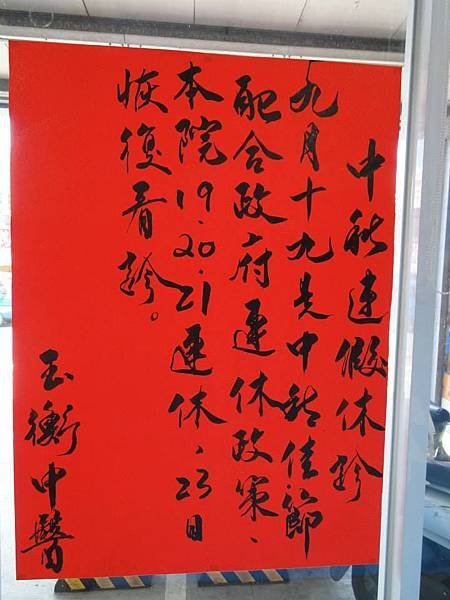 中秋連假休診
九月十九是中秋佳節
配合政府連休政策、
本院19.20.21連休、23日
恢復看診。
玉衡中醫